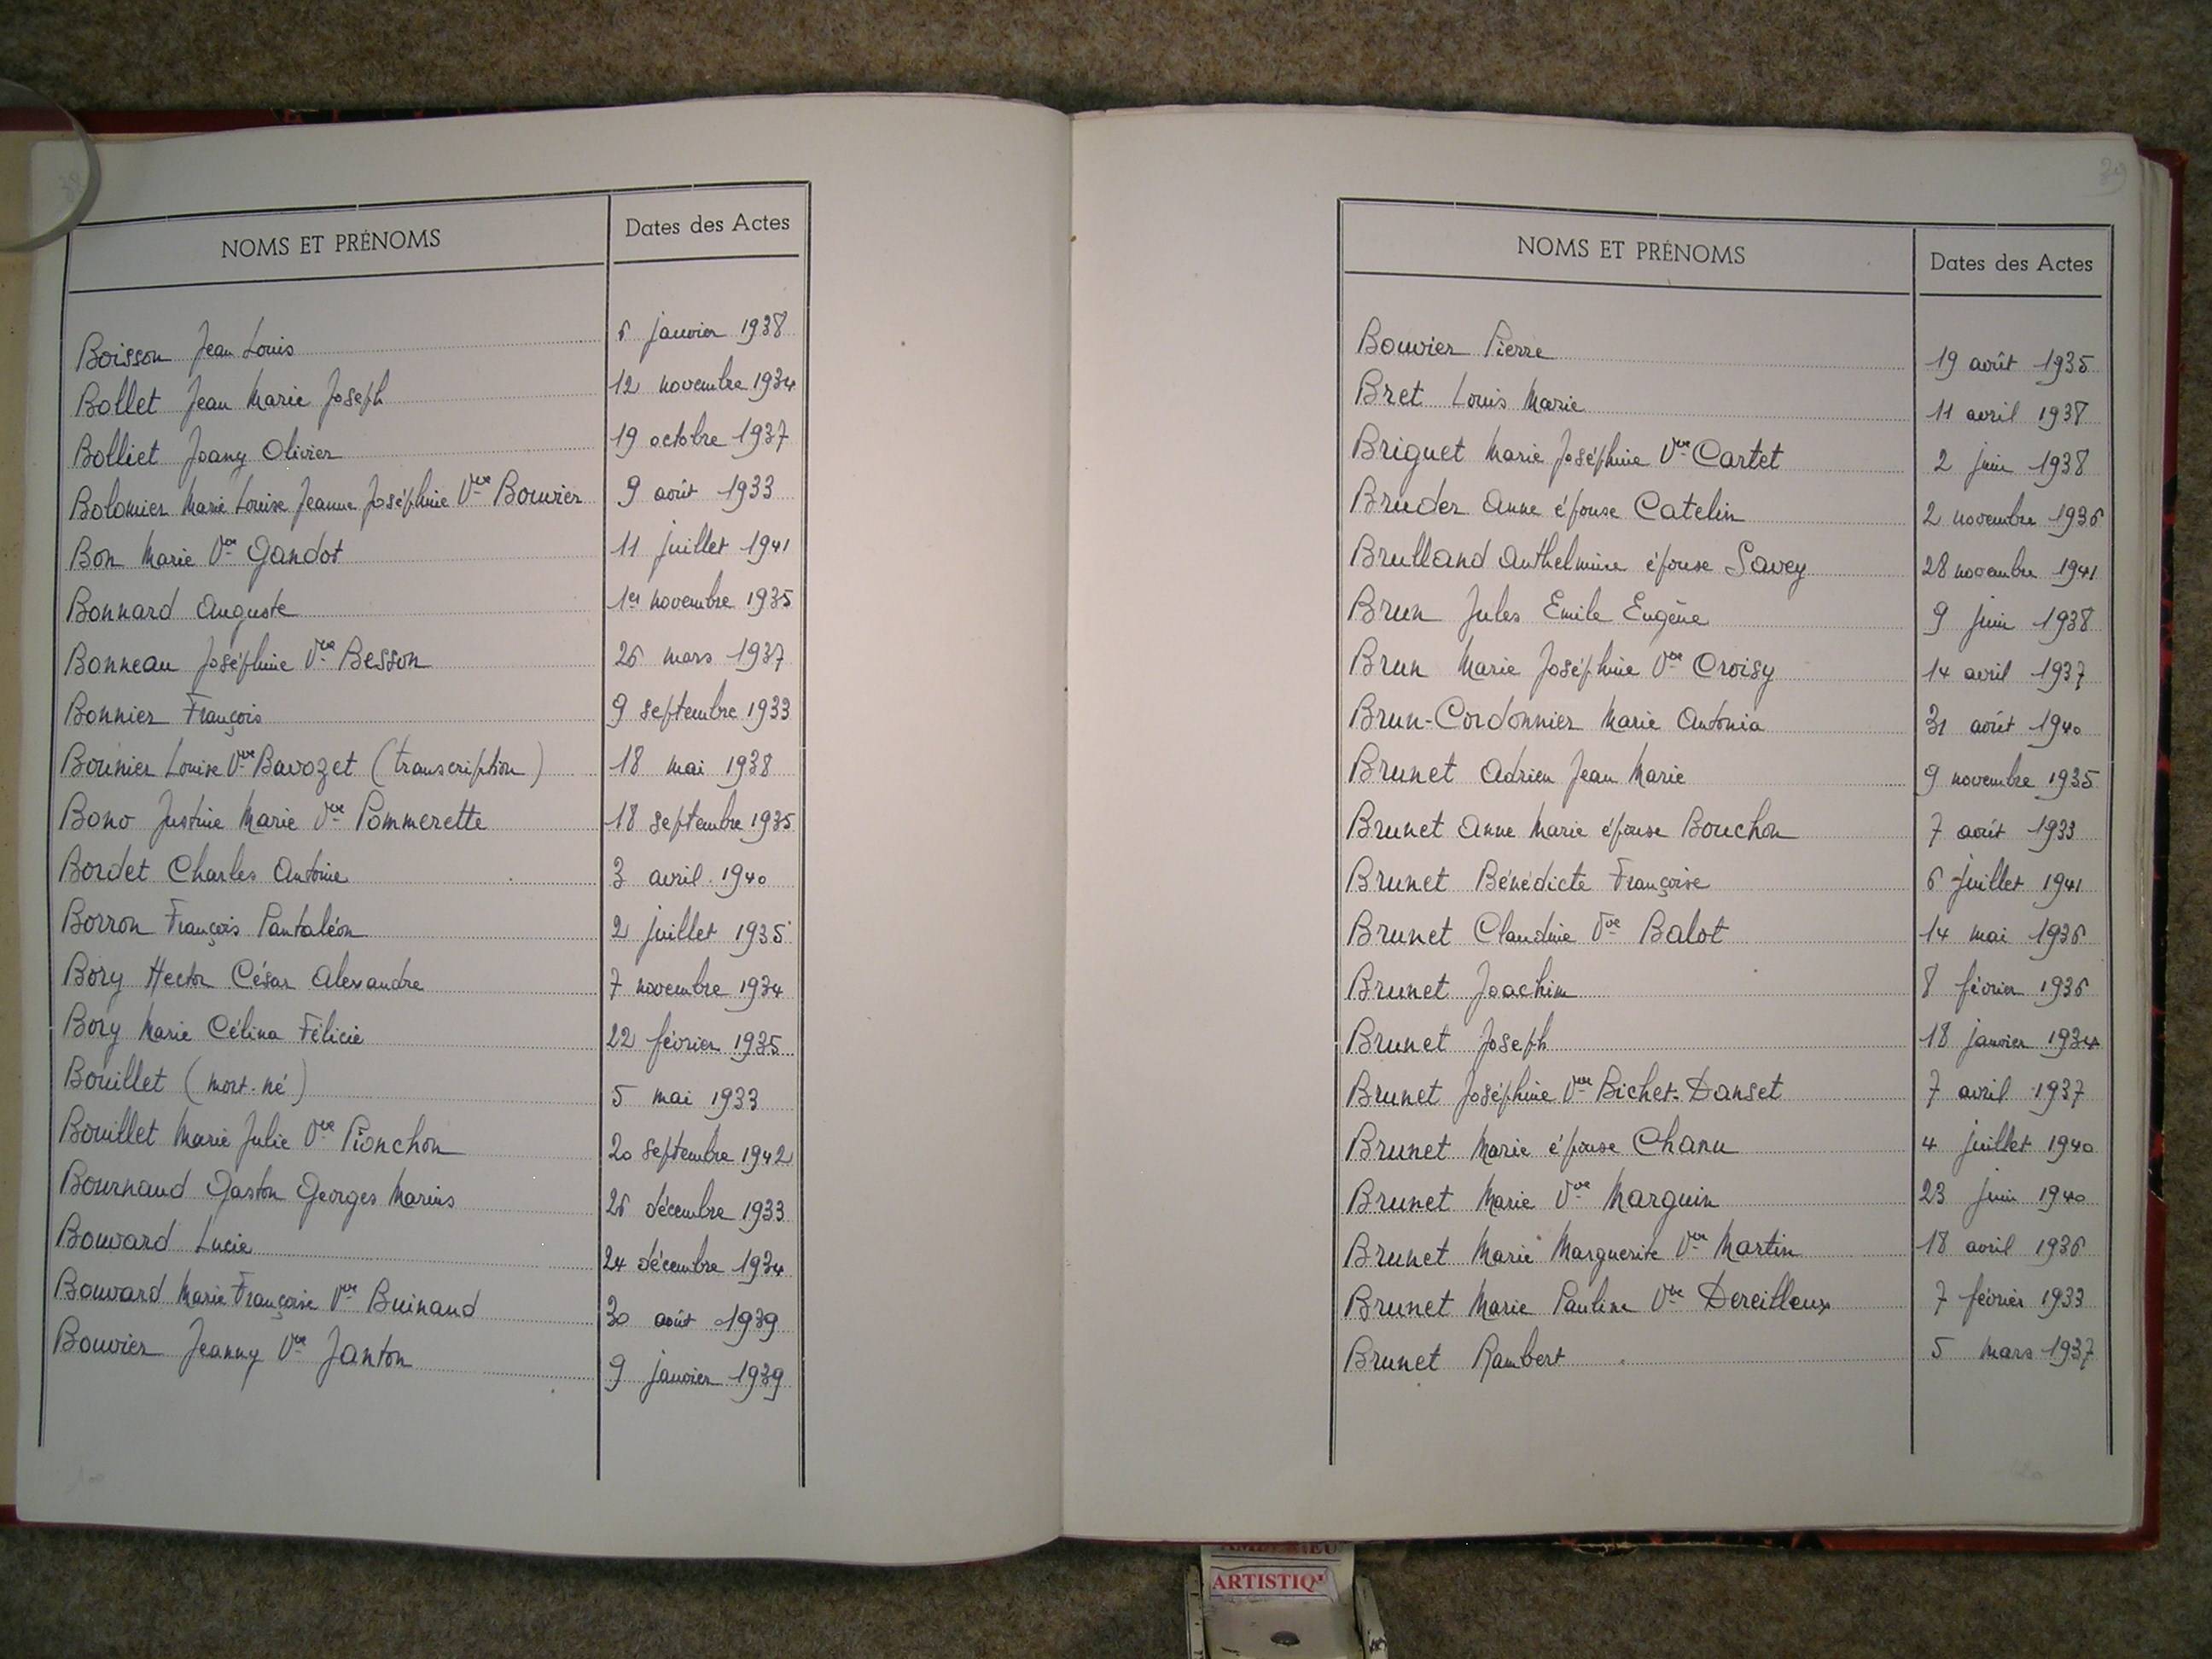 NOMS ET PRÉNOMS Dates des Actes
Boisson Jean Louis 6 janvier 1938
Bollet Jean Marie Joseph 12 novembre 1934
Bolliet Joany Olivier 19 octobre 1937
Bolomier Marie Louise Jeanne Joséphine Vve Bouvier 9 août 1933
Bon Marie Vve Gandot 11 juillet 1941
Bonnard Auguste 1er novembre 1935
Bonneau Joséphine Vve Besson 26 mars 1937
Bonnier François 9 septembre 1933
Bounier Louise Vve Bavozet (transcription) 18 mai 1938
Bono Justine Marie Vve Pommerette 18 septembre 1935
Bordet Charles Antoine 3 avril 1940
Borron François Pantaléon 2 juillet 1935
Bory Hector César Alexandre 7 novembre 1934
Bory Marie Célina Félicie 22 février 1935
Bouillet (mort-né) 5 mai 1933
Bouillet Marie Julie Vve Pionchon 20 septembre 1942
Bournaud Gaston Georges Marius 26 décembre 1933
Bouvard Lucie 24 décembre 1934
Bouvard Marie Françoise Vve Buinaud 30 août 1939
Bouvier Jeanny Vve Janton 9 janvier 1939
29
NOMS ET PRÉNOMS Dates des Actes
Bouvier Pierre 19 août 1935
Bret Louis Marie 11 avril 1938
Briguet Marie Joséphine Vve Cartet 2 juin 1938
Bruder Anne épouse Catelin 2 novembre 1936
Brulland Anthelmine épouse Savey 28 novembre 1941
Brun Jules Emile Eugène 9 juin 1938
Brun Marie Joséphine Vve Croisy 14 avril 1937
Brun-Cordonnier Marie Antonia 31 août 1940
Brunet Adrien Jean Marie 9 novembre 1935
Brunet Anne Marie épouse Bouchon 7 août 1933
Brunet Bénédicte Françoise 6 juillet 1941
Brunet Claudine Vve Balot 14 mai 1936
Brunet Joachim 8 février 1936
Brunet Joseph 18 janvier 1934
Brunet Joséphine Vve Bichet-Danset 7 avril 1937
Brunet Marie épouse Chanu 4 juillet 1940
Brunet Marie Vve Marguin 23 juin 1940
Brunet Marie Marguerite Vve Martin 18 avril 1936
Brunet Marie Pauline Vve Dereilleux 7 février 1933
Brunet Rambert 5 mars 1937
ARTISTIQ